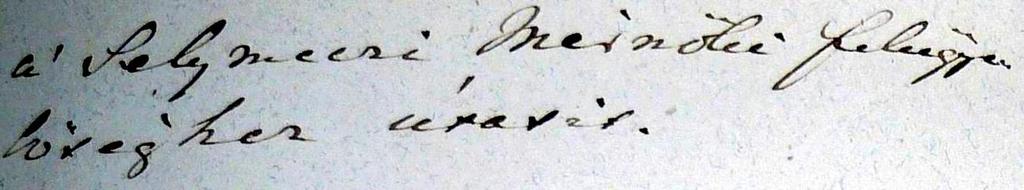 a' Selymeczi Mérnöki felügye
lőséghez útasit.